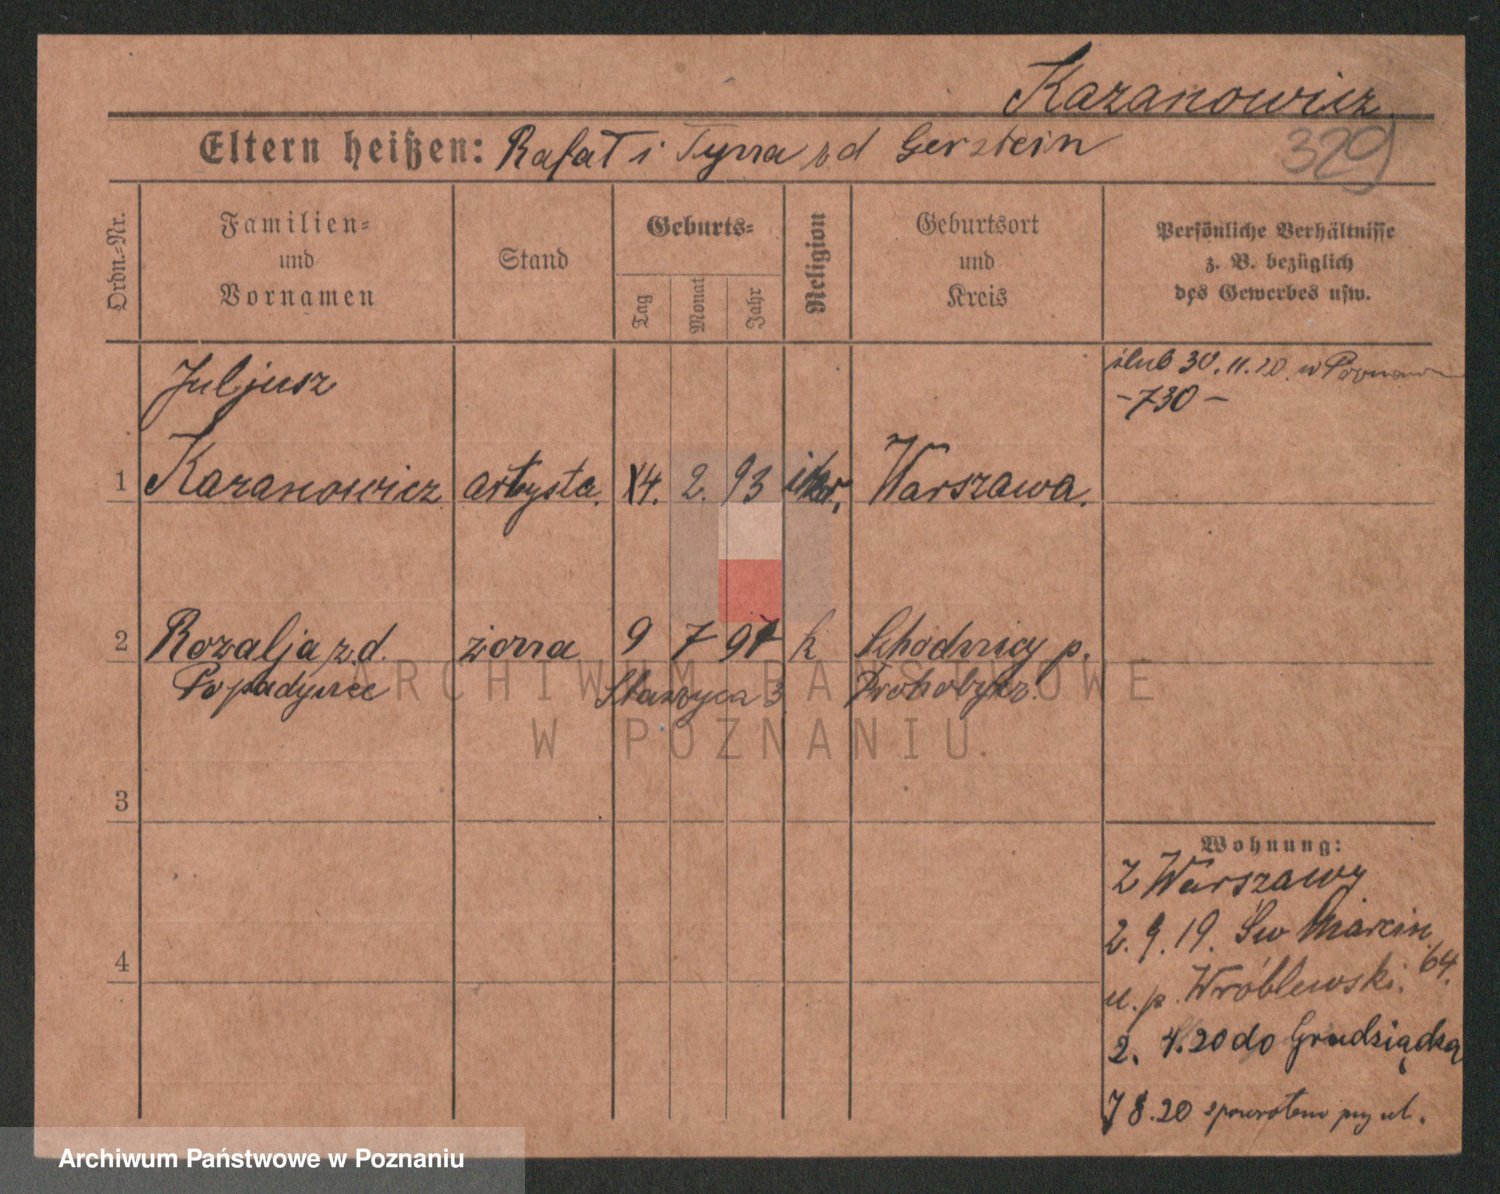 Kazanowicz
329
Eltern heißen: Rafał i Tyna z d Gersztein
Ordn.-Nr.
Familien-
und
Vornamen
Stand
Geburts-
Tag
Monat
Jahr
Religion
Geburtsort
und
Kreis
Persönliche Verhältnisse
z. B. bezüglich
des Gewerbes usw.
ślub 30.11.20. w Poznaniu
-730-
Juljusz
1 Kazanowicz artysta. 14. 2. 93 Warszawa.
2 Rozalja z.d. żona 9 7 97 k Schodnicy p.
Staszyca 3 Drohobycz.
3
Wohnung:
Z Warszawy
2.9.19. Św Marcin
64.
u.p. Wróblewski.
4
2. 4.20 do Grudziądza
7 8.20 spowrotem
ARCHIWUM PAŃSTWOWE
W POZNANIU
Archiwum Państwowe w Poznaniu